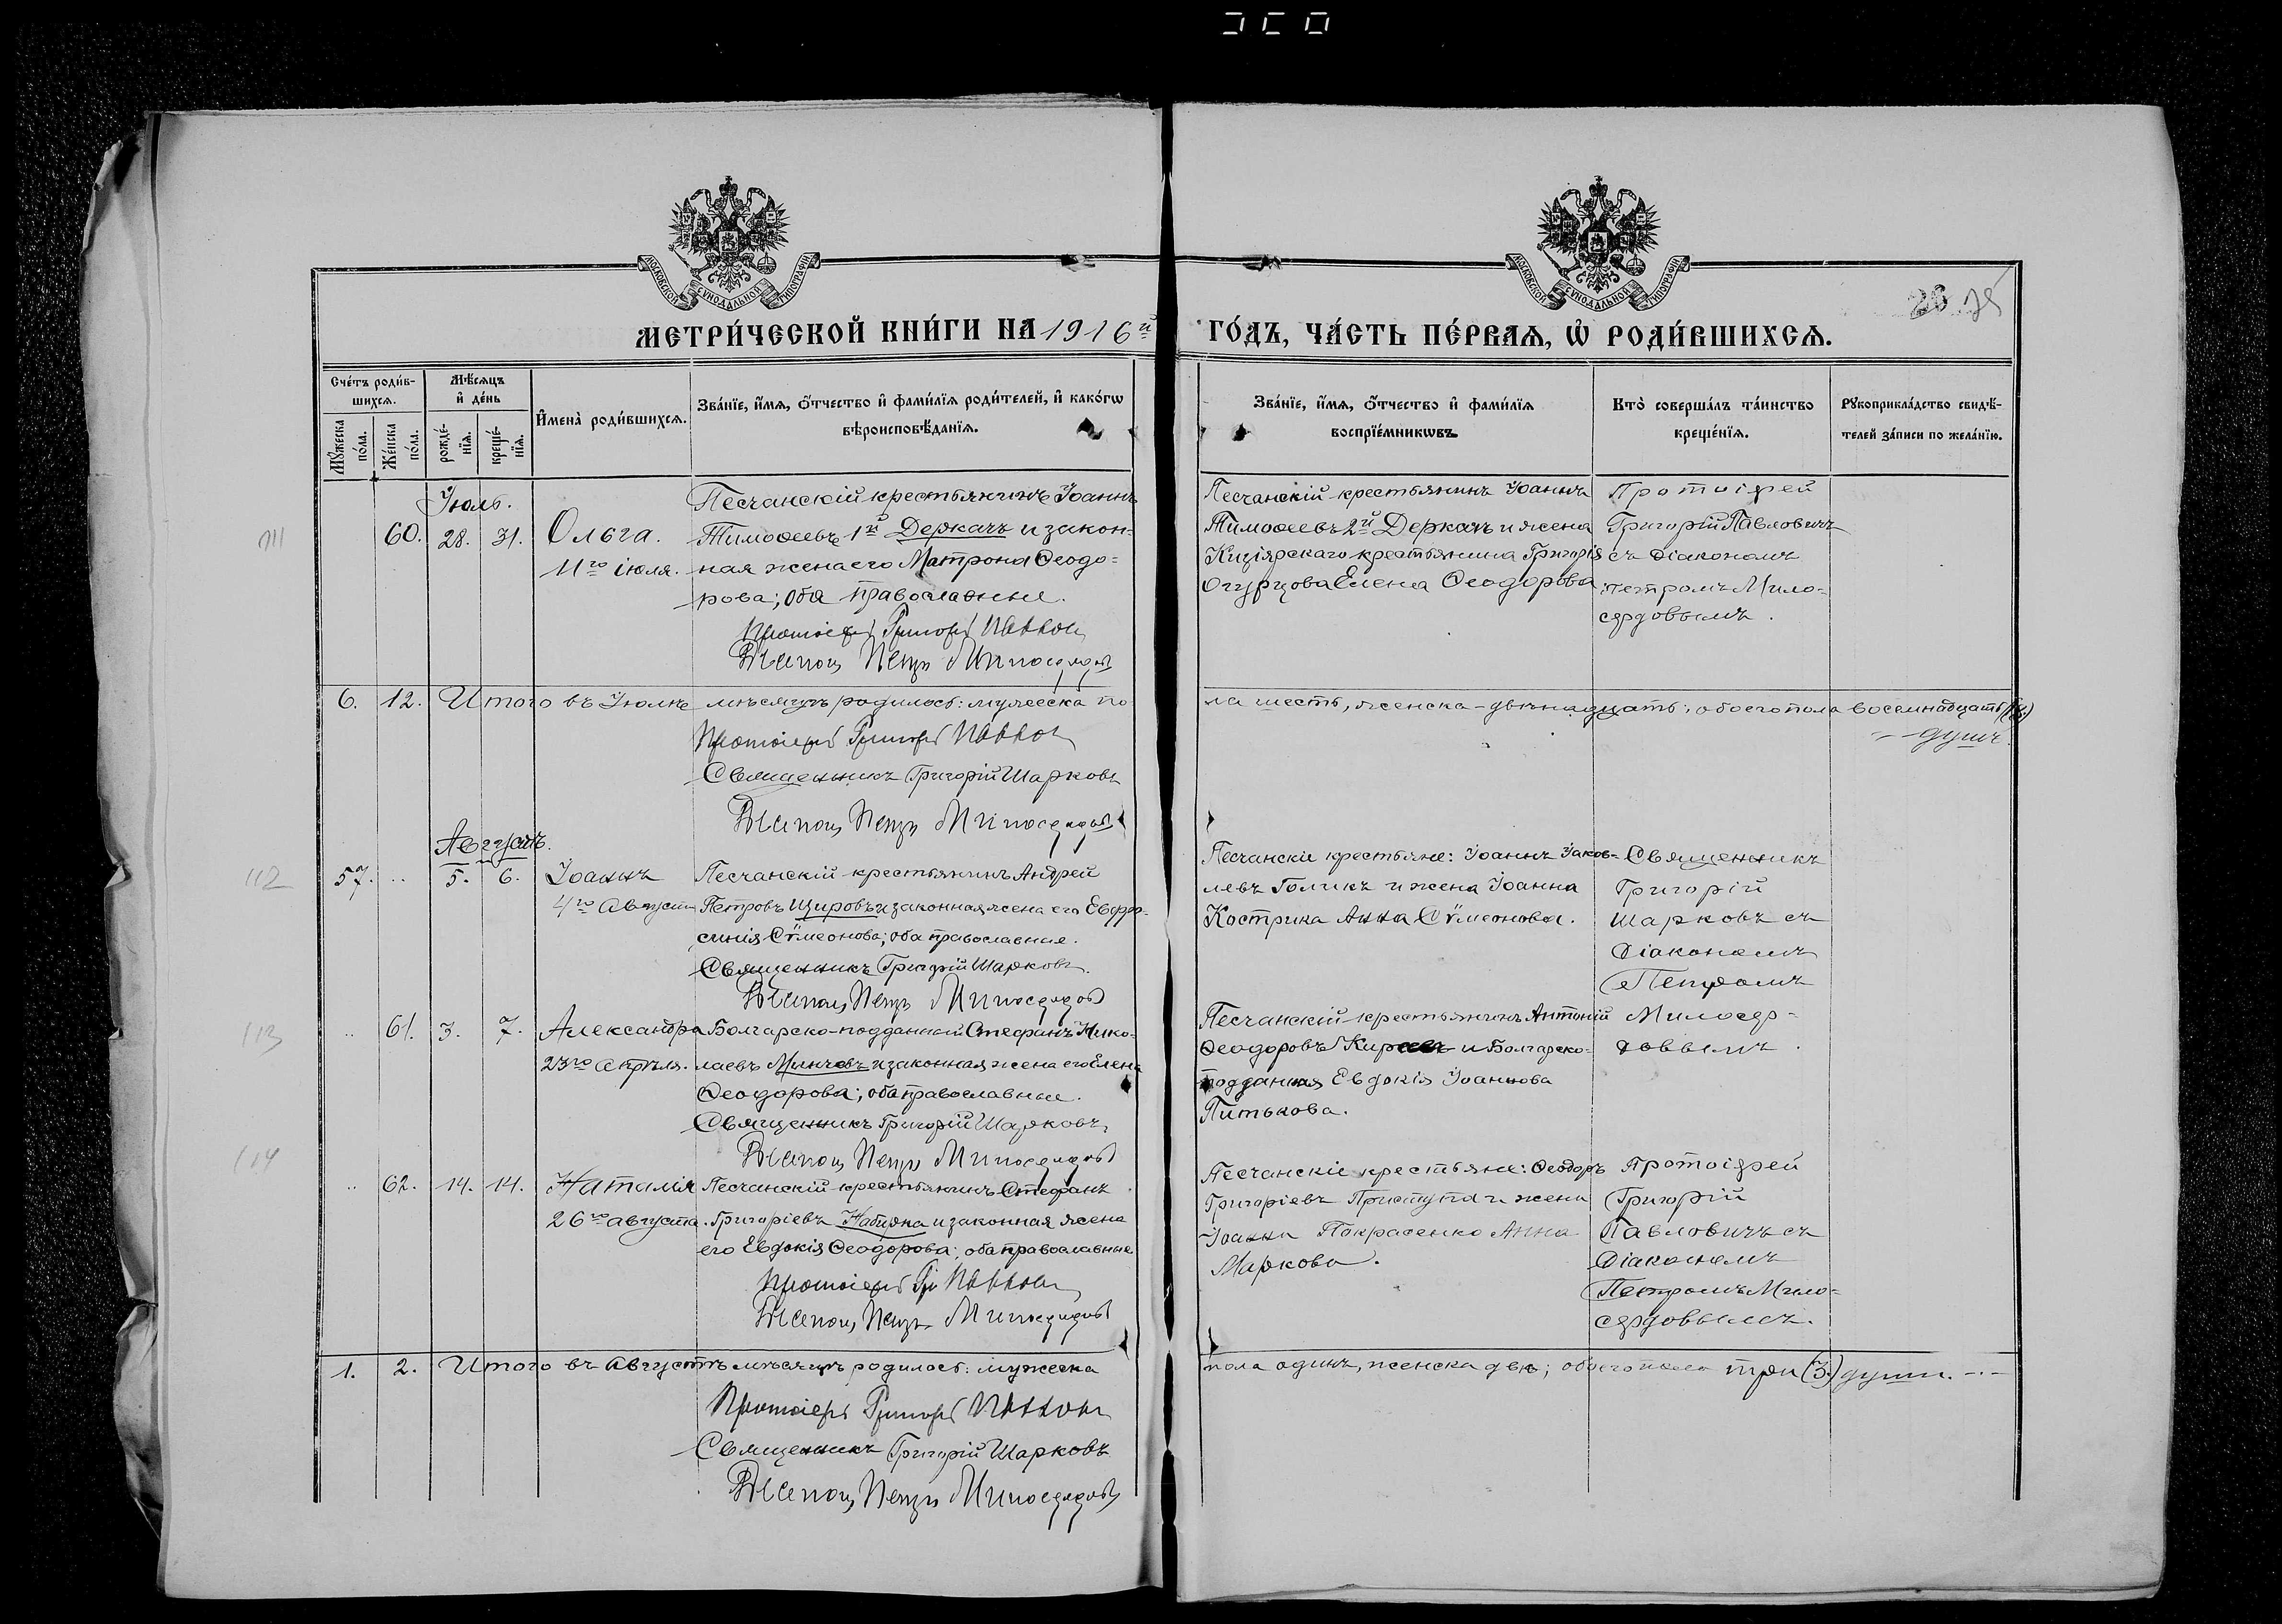 28 75
МОСКОВСКОЙ СѴНОДАЛЬНОЙ ТИПОГРАФІИ
МОСКОВСКОЙ СѴНОДАЛЬНОЙ ТИПОГРАФІИ
МЕТРИ́ЧЕСКОЙ КНИ́ГИ НА 1916й ГО́ДЪ, ЧА́СТЬ ПЕ́РВАѦ, Ѡ҆ РОДИ́ВШИХСѦ.
Сче́тъ роди́в-
шихсѧ.
Мꙋ́жеска по́ла.
Же́нска по́ла.
Мѣ́сѧцъ
и҆ де́нь
рожде́-
нїѧ.
креще́-
нїѧ.
И҆мена̀ роди́вшихсѧ.
Зва́нїе, и҆́мѧ, ѻ҆́тчество и҆ фами́лїѧ роди́телей, и҆ како́гѡ
вѣроисповѣ́данїѧ.
Зва́нїе, и҆́мѧ, ѻ҆́тчество и҆ фами́лїѧ
воспрїе́мникѡвъ.
Кто̀ соверша́лъ та́инство
креще́нїѧ.
Рꙋкоприкла́дство свидѣ́-
телей за́писи по жела́нїю.
111
Іюль.
60. 28. 31.
Ольга.
11го іюля.
Песчанскій крестьянинъ Іоаннъ
Тимоѳеевъ 1й Деркачъ и закон-
ная жена его Матрона Ѳеодо-
рова; оба православные.
Протоіерей Григорій Павлович
Діаконъ Петръ Милосердовъ
Песчанскій крестьянинъ Іоаннъ
Тимоѳеевъ 2й Деркачъ и жена
Кизіярскаго крестьянина Григорія
Огурцова Елена Ѳеодорова
Протоіерей
Григорій Павловичъ
съ діакономъ
Петромъ Мило-
сердовымъ.
6. 12. Итого въ Іюлѣ мѣсяцѣ родилось: мужеска по
ла шесть, женска - двѣнадцать; обоего пола восемнадцать (18)
душъ.
Протоіерей Григорій Павлович
Священникъ Григорій Шарковъ
Діаконъ Петръ Милосердовъ
Августъ.
112
57. .. 5. 6.
Іоаннъ
4го Августа
Песчанскій крестьянинъ Андрей
Петровъ Щировъ и законная жена его Евфро-
синія Сѷмеонова; оба православные.
Священникъ Григорій Шарковъ.
Діаконъ Петръ Милосердовъ
Песчанскіе крестьяне: Іоаннъ Іаков-
левъ Голикъ и жена Іоанна
Кострика Анна Сѷмеонова.
Священникъ
Григорій
Шарковъ съ
Діакономъ
Петромъ
Милосер-
довымъ.
113
.. 61. 3. 7.
Александра
23го апрѣля.
Болгарско-подданный Стефанъ Нико-
лаевъ Минчевъ и законная жена его Елена
Ѳеодорова; оба православные.
Священникъ Григорій Шарковъ,
Діаконъ Петръ Милосердовъ
Песчанскій крестьянинъ Антоній
Ѳеодоровъ и Болгарско-
подданная Евдокія Іоаннова
Питькова.
114
.. 62. 14. 14.
Наталія
26го августа.
Песчанскій крестьянинъ Стефанъ
Григоріевъ Набияка и законная жена
его Евдокія Ѳеодорова; оба православные
Протоіерей Гр Павлович
Діаконъ Петръ Милосердовъ
Песчанскіе крестьяне: Ѳеодоръ
Григоріевъ Приступа и жена
Іоанна Покрасенко Анна
Маркова.
Протоіерей
Григорій
Павловичъ съ
Діакономъ
Петромъ Мило-
сердовымъ.
1. 2. Итого въ Августѣ мѣсяцѣ родилось: мужеска
пола одинъ, женска двѣ; обоего пола три (3) души.
Протоіерей Григорій Павлович
Священникъ Григорій Шарковъ
Діаконъ Петръ Милосердовъ